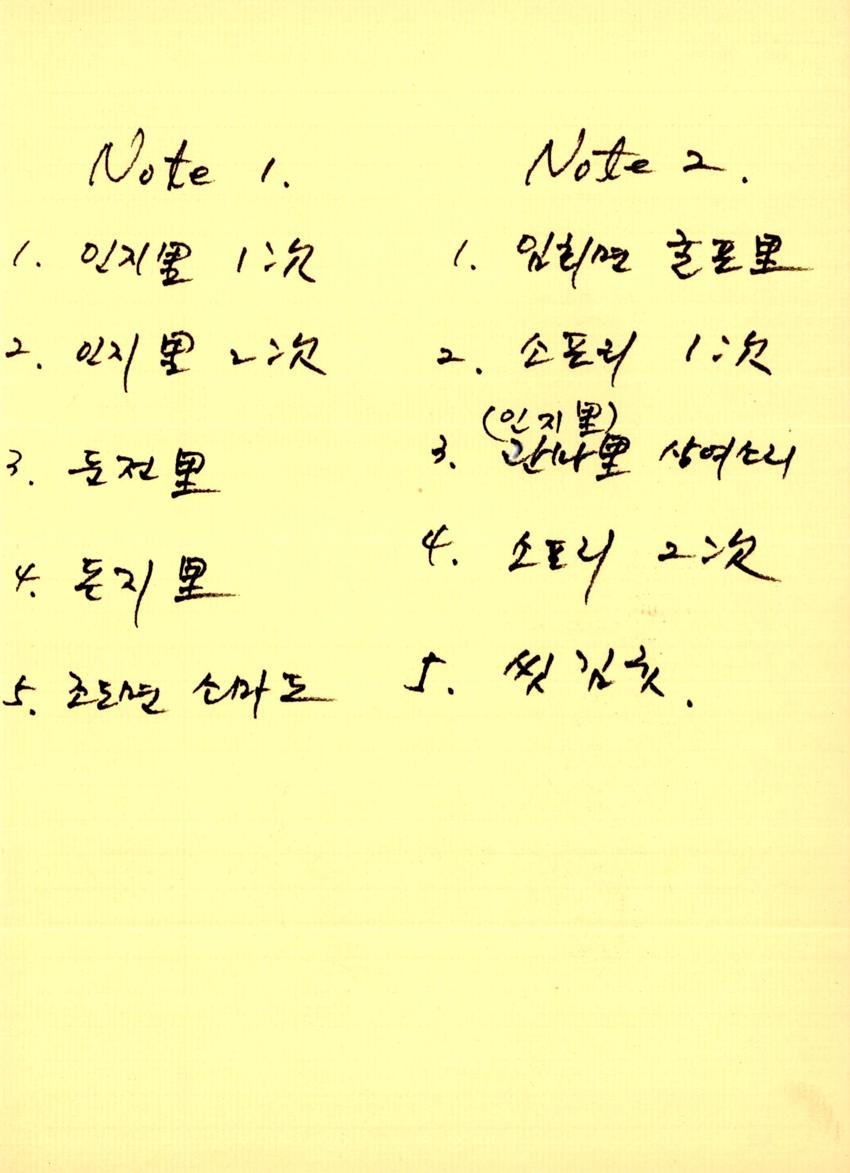 Note 1.
1. 인지里 1次
2. 인지里 2次
3. 둔전里
4. 돈지里
5. 조도면 소마도
Note 2.
1. 임회면 굴포里
2. 소포리 1次
(인지里)
3. 관마里 상여소리
4. 소포리 2次
5. 씻김굿.